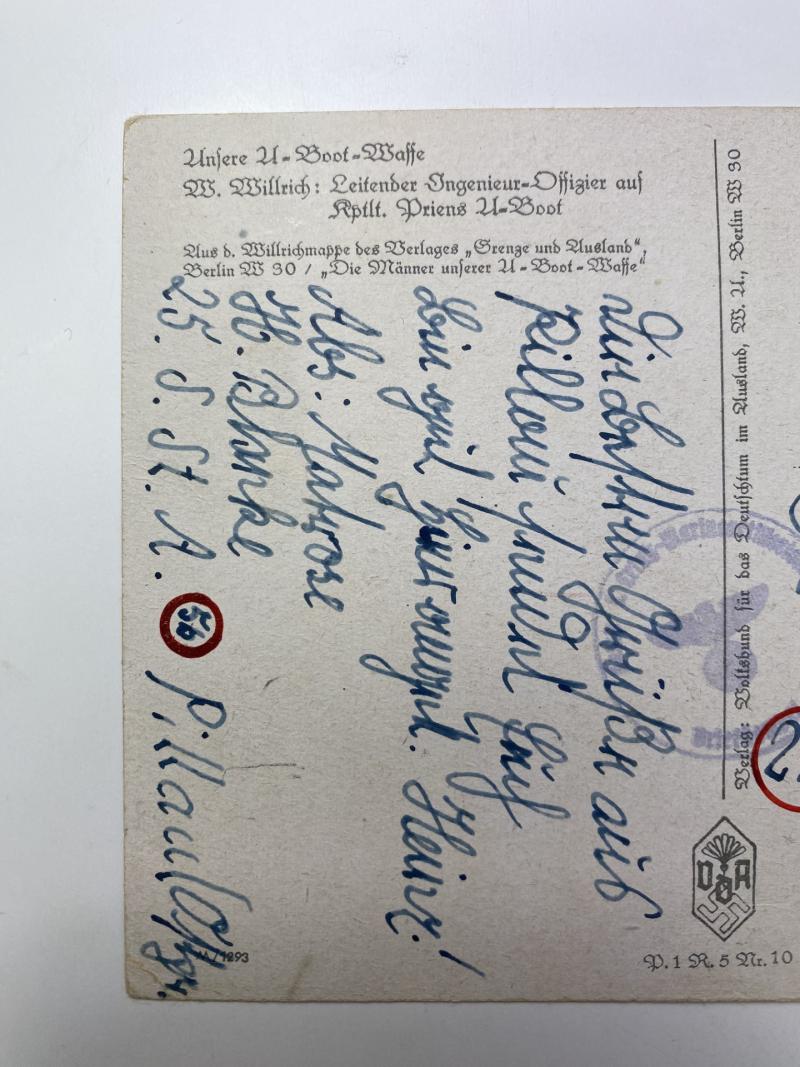 Unsere U-Boot-Waffe
W. Willrich: Leitender Ingenieur-Offizier auf
Kptlt. Priens U-Boot
Aus d. Willrichmappe des Verlages „Grenze und Ausland“,
Berlin W 30 / „Die Männer unserer U-Boot-Waffe“
Die besten Grüße aus
Pillau sendet Euch
Heinz!
Abs: Matrose
H. Blanke
25. S. St. A.
5b
Pillau/Ostpr.
Verlag: Volksbund für das Deutschtum im Ausland, W. U., Berlin W 30
VDA
M/1293
P. 1 R. 5 Nr. 10